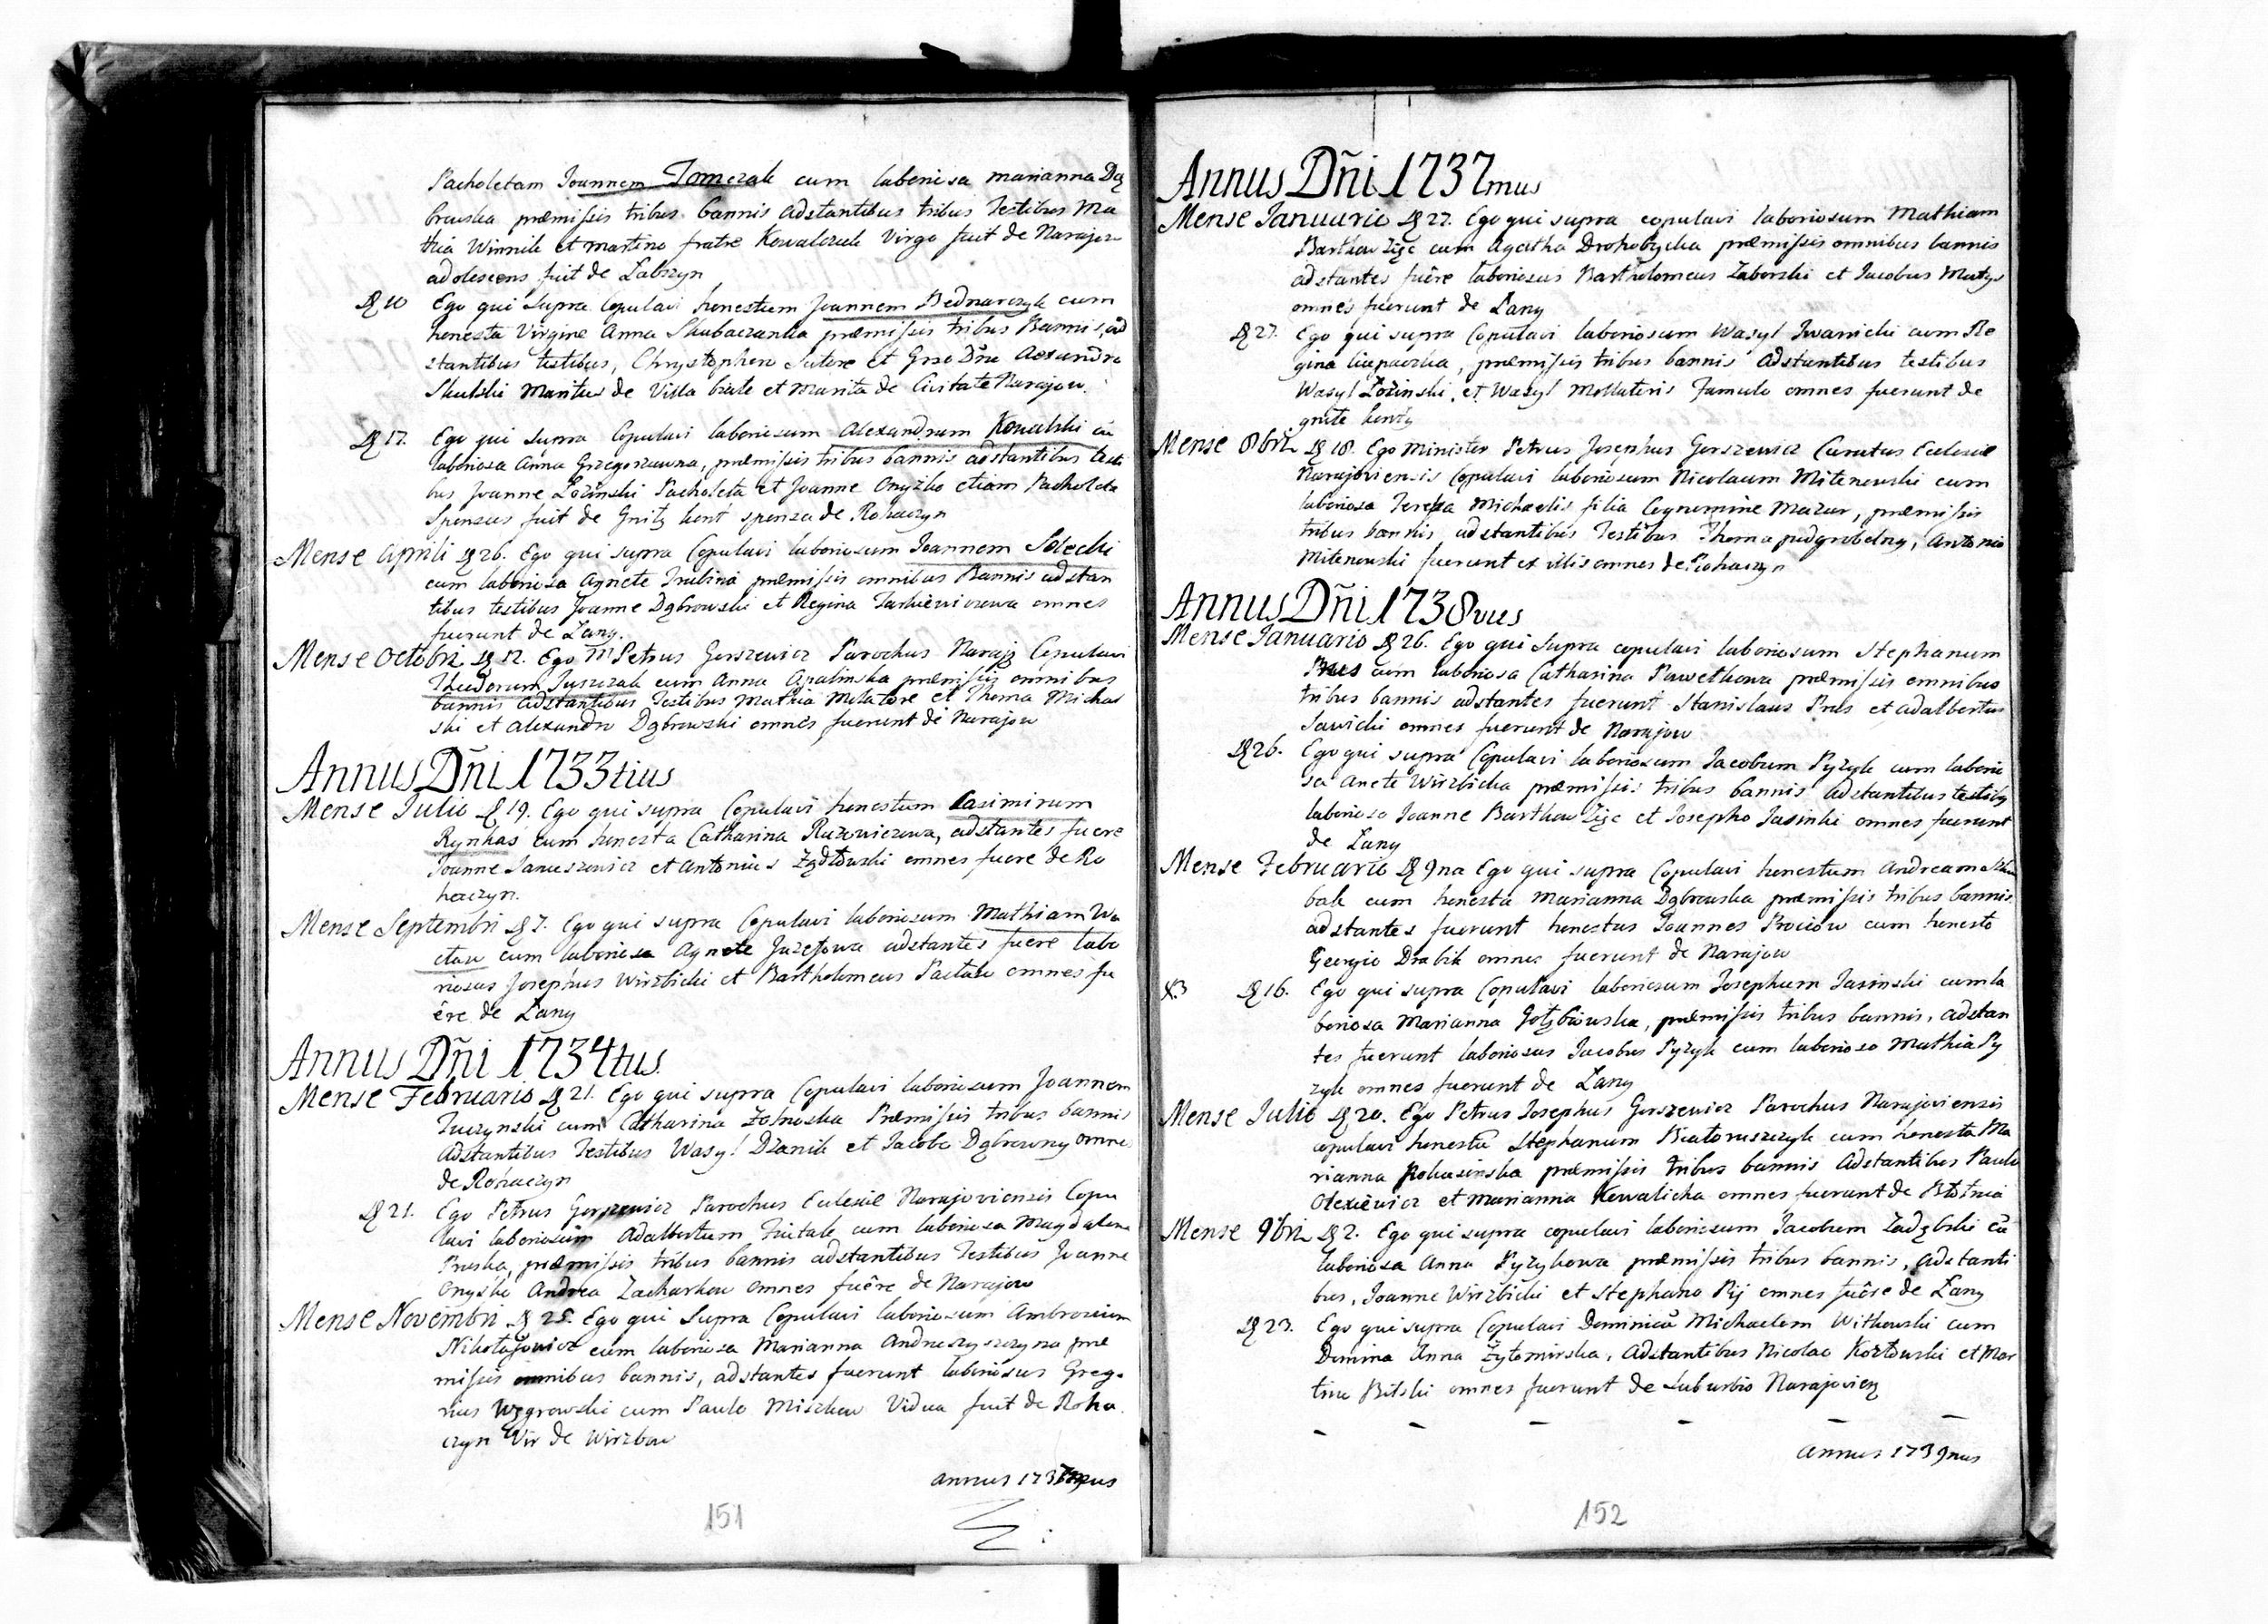 Pacholetam Joannem Tomczak cum laboriosa marianna Dą
browska præmissis tribus bannis adstantibus tribus Testibus Ma
thia Winnik et martino fratre Kowalczuk Virgo fuit de Narajow
adolescens fuit de Łabszyn
10 Ego qui supra Copulavi honestum Joannem Bednarczyk cum
honesta Virgine Anna Skubaczanka præmissis tribus Bannis, ad
stantibus testibus, Chrystophoro Sutore et Grso Dño
Skulski Maritus de Villa białe et Marita de Civitate Narajow.
17. Ego qui supra Copulavi laboriosum Alexandrum Kowalski cū
laboriosa Anna Grzegorzowna, præmissis tribus bannis adstantibus testi
bus Joanne Łoziński Pacholeta et Joanne Onyżko etiam Pacholeta
Sponsus fuit de sponsa de Rohaczyn
Mense Aprili 26. Ego qui supra Copulavi laboriosum Joannem Solecki
cum laboriosa Agnete præmissis omnibus Bannis adstan
tibus testibus Joanne Dąbrowski et Regina omnes
fuerunt de Łany.
Mense Octobri 12. Ego Petrus Gerszewicz Parochus Copulavi
Theodorum Juszczak cum Anna Apalinska præmissis omnibus
bannis adstantibus Testibus Mathia et Thoma Michal
ski et Alexandro Dąbrowski omnes fuerunt de Narajow
Annus Dñi 1733tius
Mense Julio 19. Ego qui supra Copulavi honestum Casimirum
Rynkas cum honesta Catharina Ruzowiczowa, adstantes fuere
Joanne Januszewicz et Antonius omnes fuere de Ro
haczyn.
Mense Septembri 7. Ego qui supra Copulavi laboriosum Mathiam Wo
ctow cum laboriosa Agnete Juzefowa adstantes fuere labo
riosus Josephus Wirzbicki et Bartholomeus omnes fu
ëre de Łany
Annus Dñi 1734tus
Mense Februario 21. Ego qui supra Copulavi laboriosum Joannem
Tuczynski cum Catharina Præmissis tribus bannis
Adstantibus Testibus Wasyl Dżanik et Jacobo Dąbrowny omnes
de Rohaczyn
21. Ego Petrus Gerszewicz Parochus Eclesiæ Narajoviensis Copu
lavi laboriosum Adalbertum cum laboriosa Magdalena
Pruska, præmissis tribus bannis adstantibus Testibus Joanne
Onyśko Andrea Zacharkow omnes fuêre de Narajow
Mense Novembri 25. Ego qui Supra Copulavi laboriosum Ambrosium
cum laboriosa Marianna Andruszyszczyna præ
missis omnibus bannis, adstantes fuerunt laboriosus Grego
rius Węgrowski cum Paulo Miszkow Vidua fuit de Roha
czyn Vir de Wirzbow
annus
151
Annus Dñi 1737mus
Mense Ianuario 27. Ego qui supra copulavi laboriosum Mathiam
Bartkow Zięc cum Agatha Drohobycka præmissis omnibus bannis
adstantes fuêre laboriosus Bartholomeus Zaborski et Jacobus Matys
omnes fuerunt de Łany
27. Ego qui supra Copulavi laboriosum Wasyl Iwanicki cum Re
gina præmissis tribus bannis adstantibus testibus
Wasyl Łoziński, et Wasyl Famulo omnes fuerunt de
Mense 8bri 18. Ego Minister Petrus Josephus Gerszewicz Curatus Eclesiæ
Narajoviensis Copulavi laboriosum Nicolaum Mitenowski cum
laboriosa Teresa Michaelis filia Cognomine Mazur, præmissis
tribus bannis, adstantibus Testibus Thoma Antonio
Mitenowski fuerunt ex illis omnes de Rohaczyn
Annus Dñi 1738vus
Mense Ianuario 26. Ego qui supra copulavi laboriosum Stephanum
Prus cum laboriosa Catharina Pawełkowa præmissis omnibus
tribus bannis adstantes fuerunt Stanislaus Prus et Adalbertus
Sawicki omnes fuerunt de Narajow
26. Ego qui supra Copulavi laboriosum Jacobum Pyzyk cum laborio
sa Anete Wirzbicka præmissis tribus bannis adstantibus testibq
laborioso Joanne Bartkow Zięc et Josepho Jasinski omnes fuerunt
de Łany
Mense Februario 9na Ego qui supra Copulavi honestum Andream
bak cum honesta Marianna Dąbrowska præmissis tribus bannis
adstantes fuerunt honestus Joannes Prociow cum honesto
Georgio Drabik omnes fuerunt de Narajow
16. Ego qui supra Copulavi laboriosum Josephum Jasinski cum la
boriosa Marianna Gołębiowska, præmissis tribus bannis, adstan
tes fuerunt laboriosus Jacobus Pyzyk cum laborioso Mathia Py
zyk omnes fuerunt de Łany
Mense Julio 20. Ego Petrus Josephus Gerszewicz Parochus Narajoviensis
copulavi honestū Stephanum Białoruszczyk cum honesta Ma
rianna Rohasinska præmissis tribus bannis adstantibus Paulo
Olexiewicz et Marianna Kowalicka omnes fuerunt de Błotnia
Mense 9bri 2. Ego qui supra copulavi laboriosum Jacobum Zadębski cū
laboriosa Anna Pyzykowa præmissis tribus bannis, adstanti
bus, Joanne Wirzbicki et Stephano Rij omnes fuêre de Łany
23. Ego qui supra Copulavi Dominicū Michaelem Witkowski cum
Domina Anna Żytomirska, Adstantibus Nicolao Kozłowski et Mar
tino Bilski omnes fuerunt de Suburbio
annus 1739nus
152